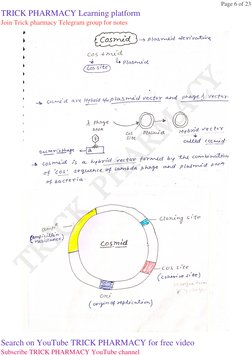 Page 6 of 23
TRICK PHARMACY Learning platform
Join Trick pharmacy Telegram group for notes
Cosmid → Plasmid derivative
cos + mid
cos site → Plasmid
→ Cosmid are Hybid b/w plasmid vector and phage λ vector
λ Phage
DNA
cos site
Plasmid
Hybrid vector
called cosmid
Bacteriophage
→ cosmid is a hybrid vector formed by the combination
of 'cos' sequence of lambda phage and plasmid DNA
of bacteria.
ampR
(ampicillin resistance)
Cloning site
Cosmid
Cos site
(cohesive site)
Ori
(origin of replication)
TRICK PHARMACY
Search on YouTube TRICK PHARMACY for free video
Subscribe TRICK PHARMACY YouTube channel